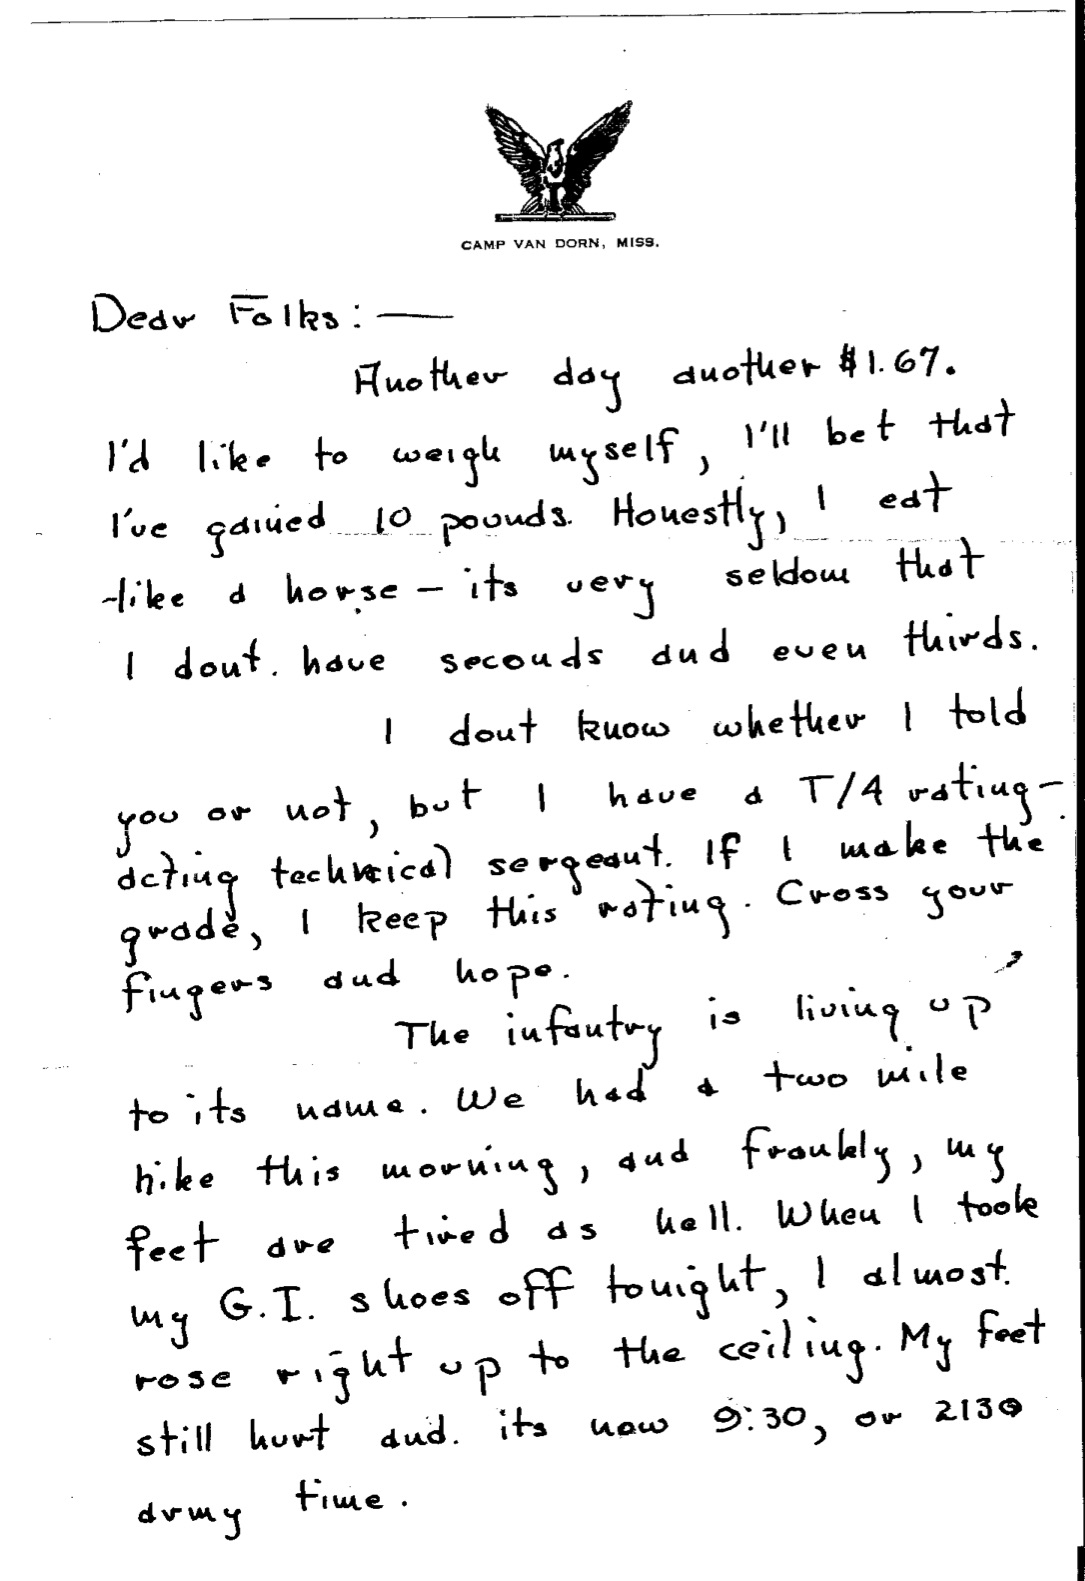 CAMP VAN DORN, MISS.
Dear Folks: —
Another day another $1.67.
I'd like to weigh myself, I'll bet that
I've gained 10 pounds. Honestly, I eat
like a horse — its very seldom that
I dont have seconds and even thirds.
I dont know whether I told
you or not, but I have a T/4 rating —
acting technical sergeant. If I make the
grade, I keep this rating. Cross your
fingers and hope.
The infantry is living up
to its name. We had a two mile
hike this morning, and frankly, my
feet are tired as hell. When I took
my G.I. shoes off tonight, I almost
rose right up to the ceiling. My feet
still hurt and its now 9:30, or 2130
army time.